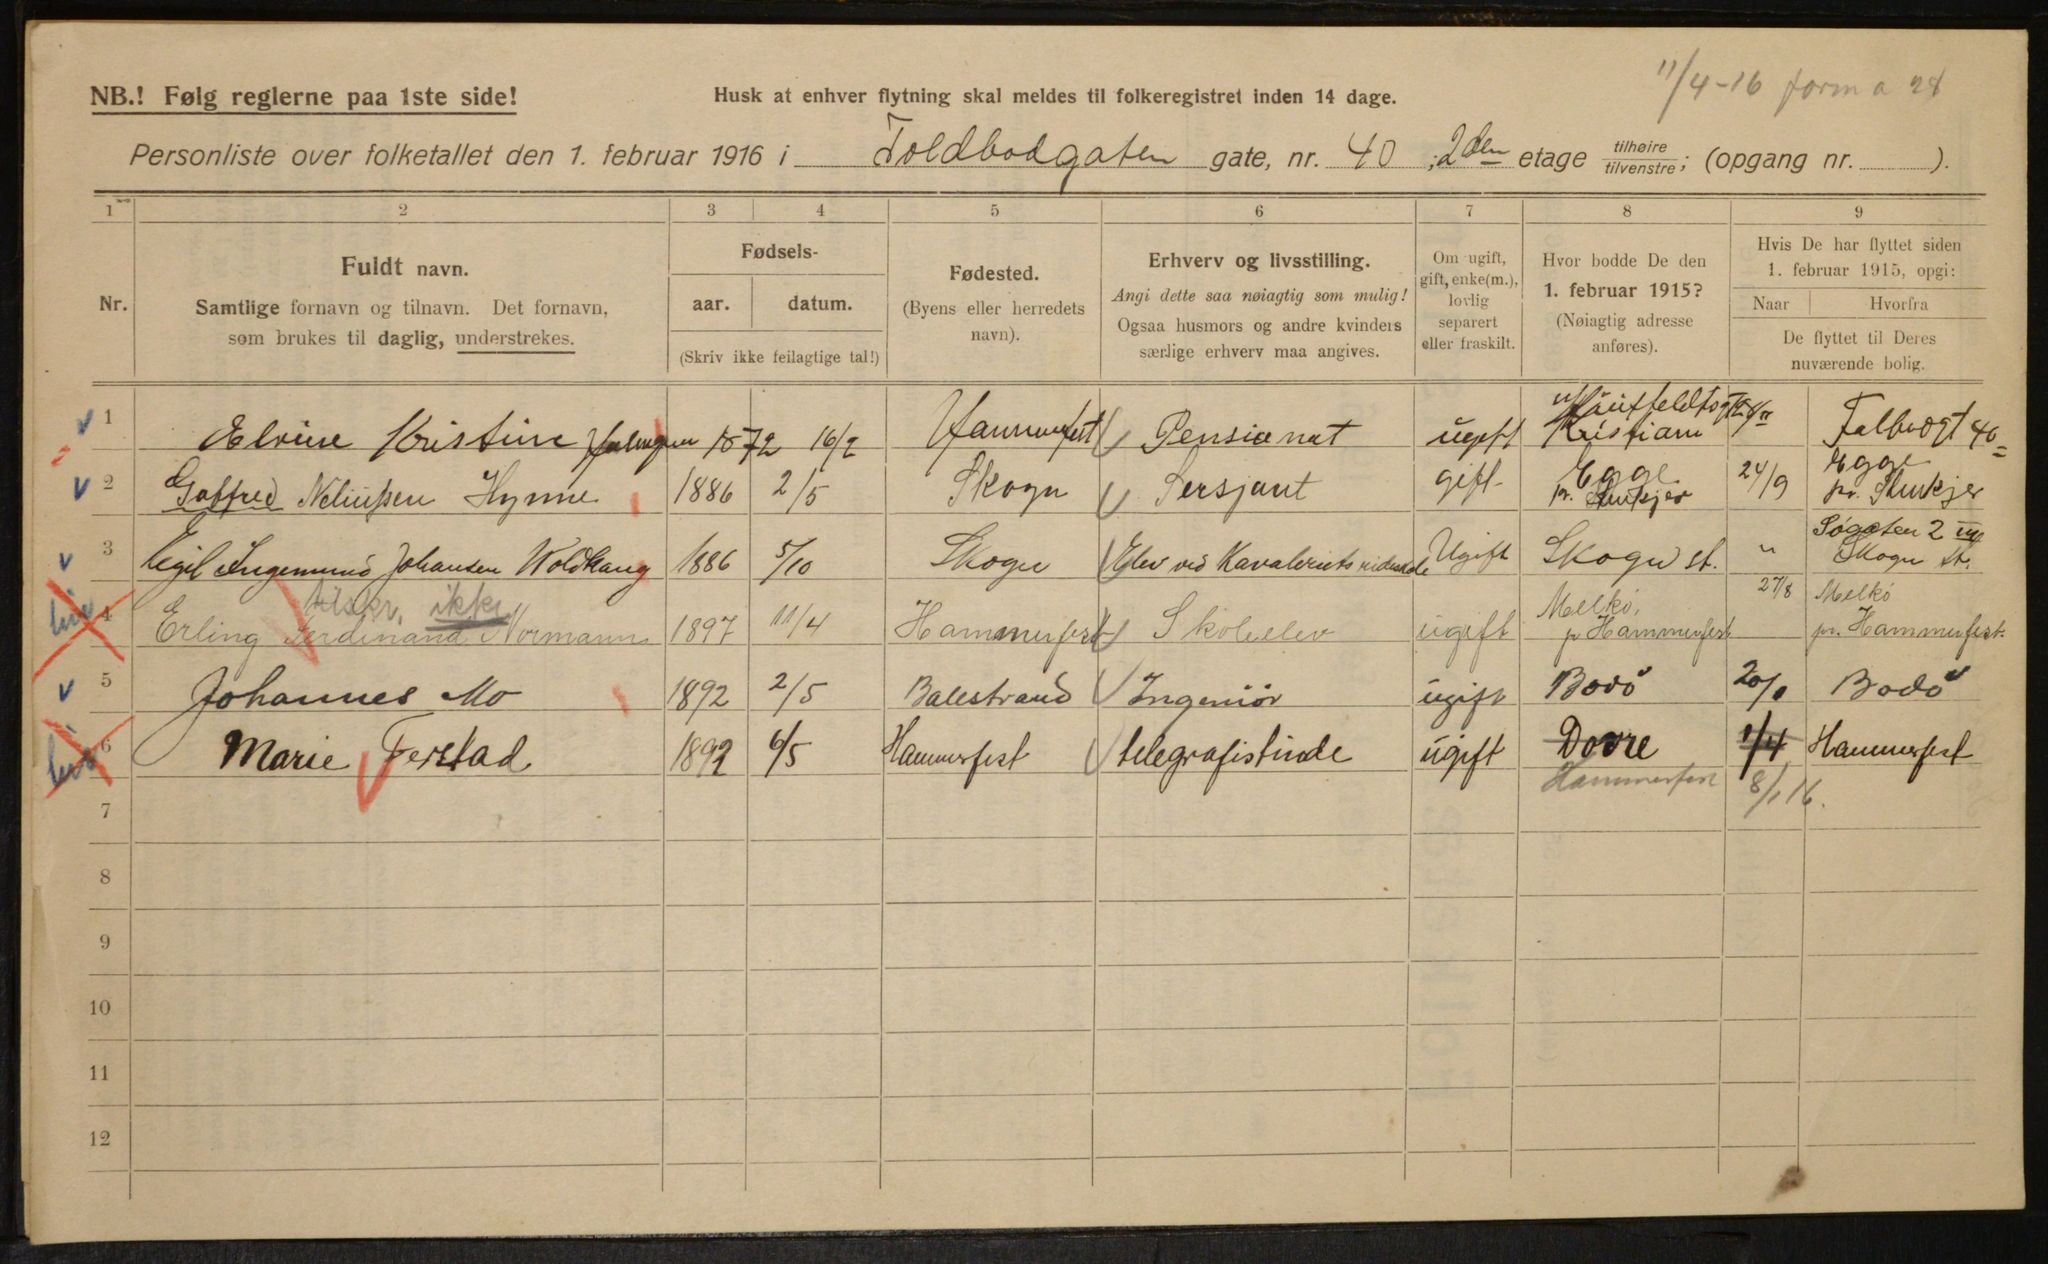 11/4-16 form a 28
NB.! Følg reglerne paa 1ste side!
Husk at enhver flytning skal meldes til folkeregistret inden 14 dage.
Personliste over folketallet den 1. februar 1916 i Toldbodgaten gate, nr. 40 ; 2den etage tilhøire/tilvenstre; (opgang nr. ).
1 2 3 4 5 6 7 8 9
Nr.
Fuldt navn.
Samtlige fornavn og tilnavn. Det fornavn,
som brukes til daglig, understrekes.
Fødsels-
aar. datum.
(Skriv ikke feilagtige tal!)
Fødested.
(Byens eller herredets
navn).
Erhverv og livsstilling.
Angi dette saa nøiagtig som mulig!
Ogsaa husmors og andre kvinders
særlige erhverv maa angives.
Om ugift,
gift, enke(m.),
lovlig
separert
eller fraskilt.
Hvor bodde De den
1. februar 1915?
(Nøiagtig adresse
anføres).
Hvis De har flyttet siden
1. februar 1915, opgi:
Naar Hvorfra
De flyttet til Deres
nuværende bolig.
1 Elvine Kristine 1872 16/2 Hammerfest Pensionat ugift Kristiani 40
2 Gotfred Neliussen Hynne 1886 2/5 Skogn Sersjant gift Egge pr. Stenkjer 24/9 Egge pr. Stenkjer
3 Egil Ingemund Johansen Woldkang 1886 5/10 Skogn Elev ved Kavaleriets Ugift Skogn st. " Søgaten 2 Skogn st.
ikke
4 Erling Ferdinand Normann 1897 11/4 Hammerfest Skoleelev ugift Melkö, p Hammerfest 27/8 Melkö pr. Hammerfest.
5 Johannes Mo 1892 2/5 Balestrand Ingeniör ugift Bodö Bodö
6 Marie Ferstad 1892 6/5 Hammerfest telegrafistinde ugift Dovre 1/4 Hammerfest
Hammerfest 8/1 16.
7
8
9
10
11
12